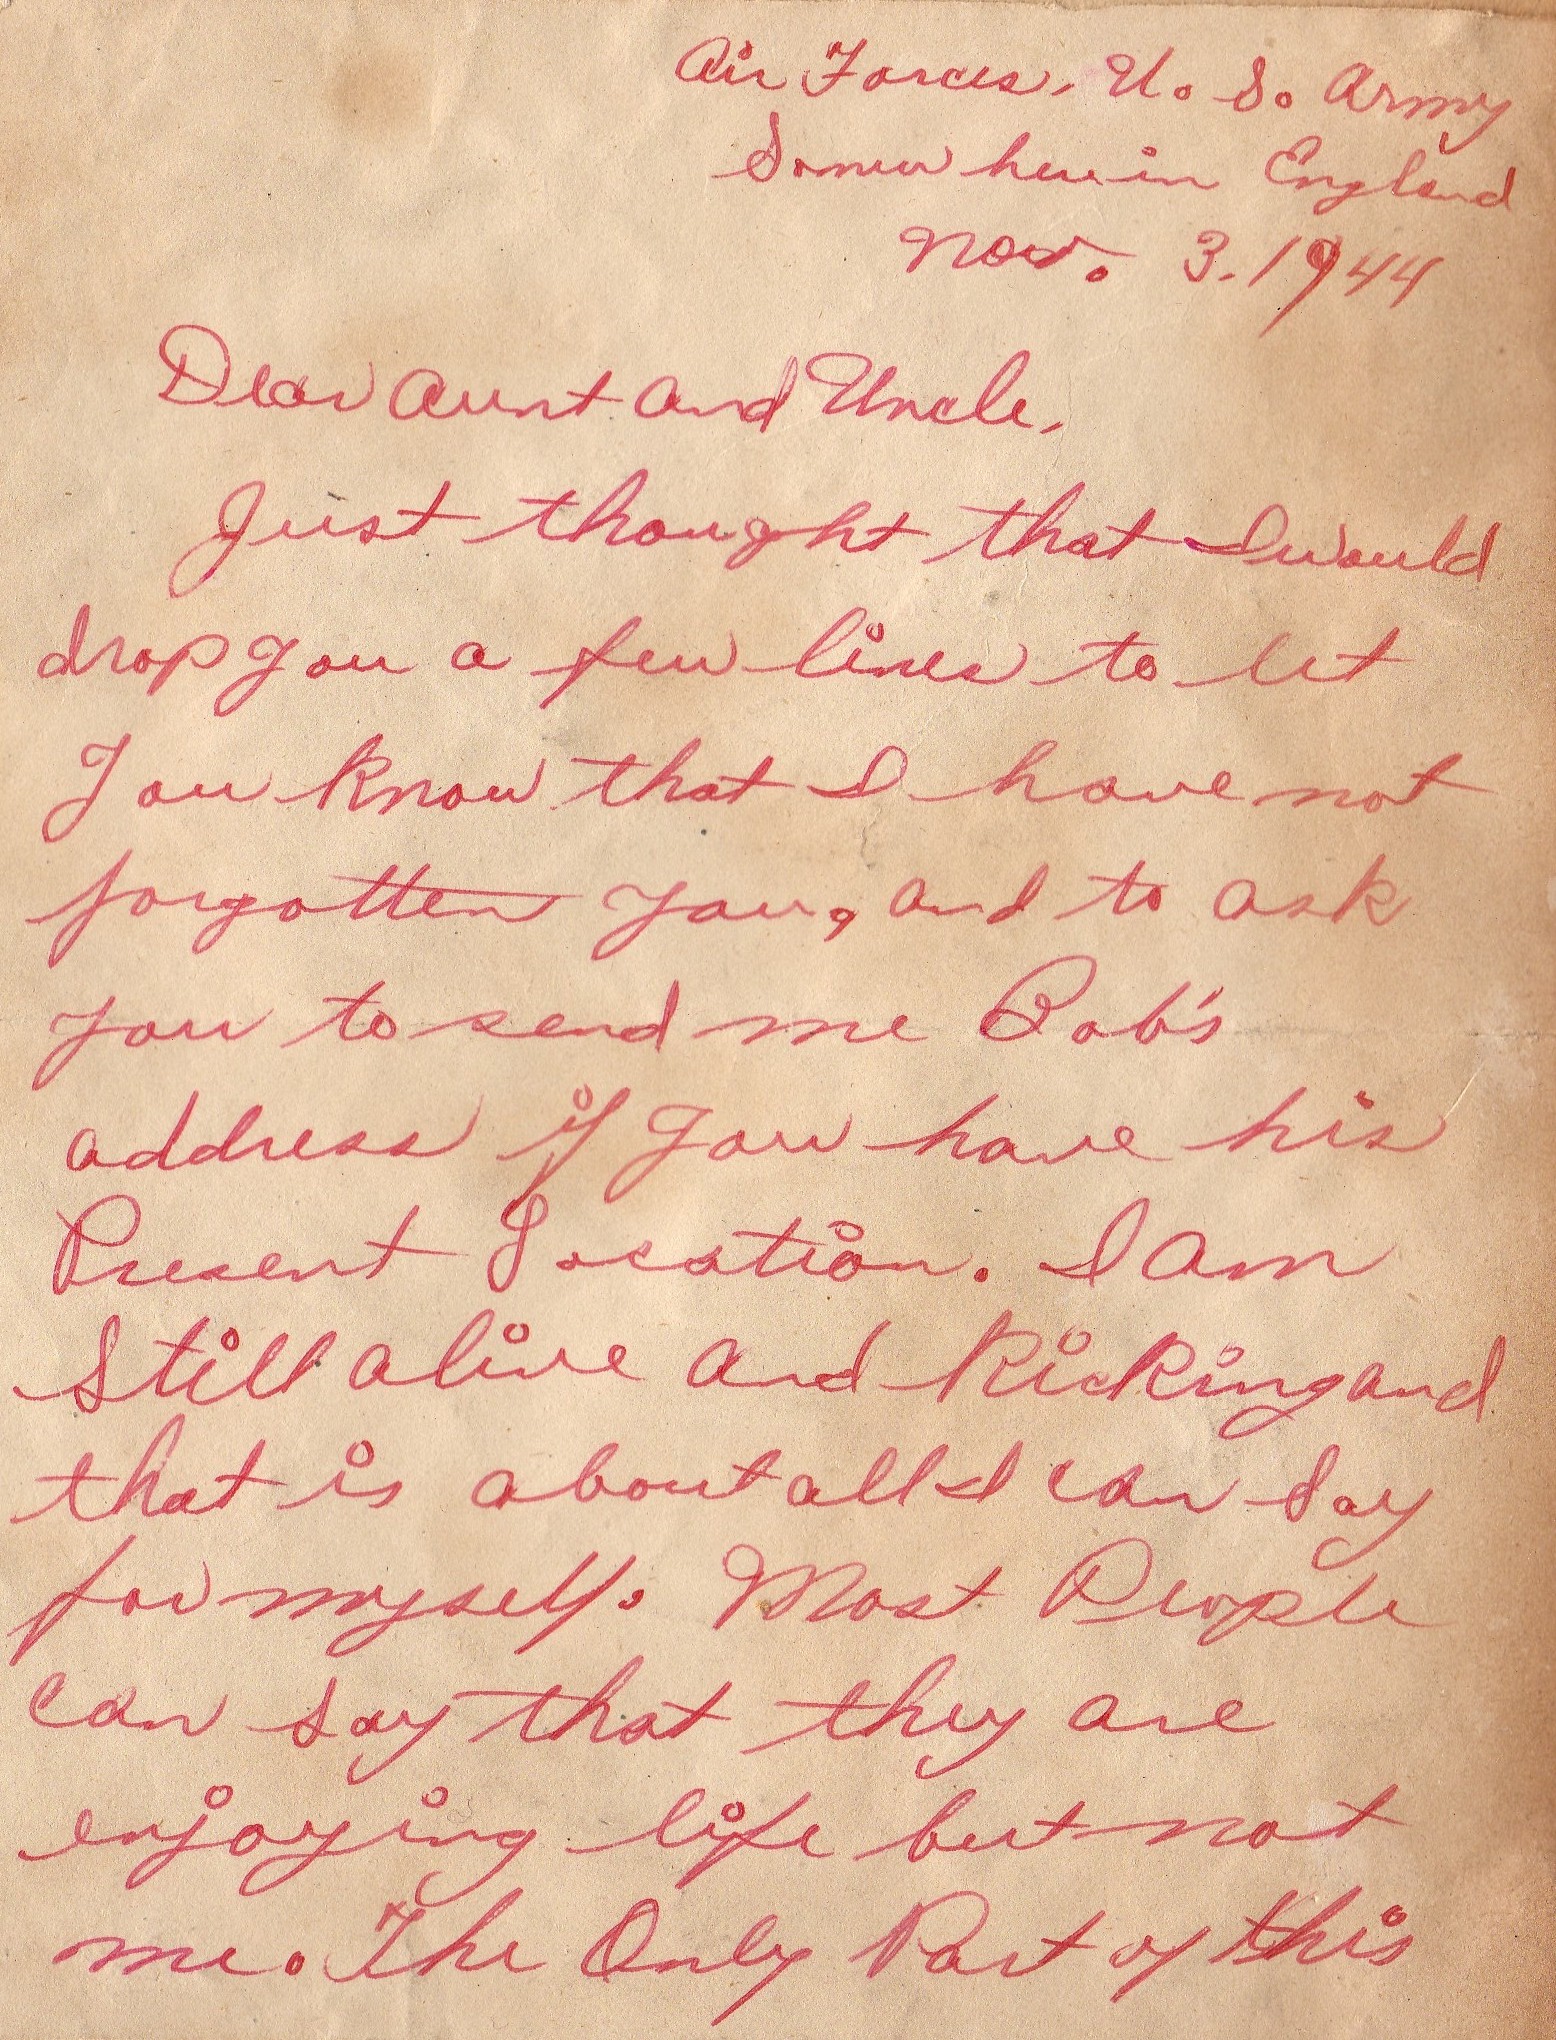 Air Forces, U. S. Army
Somewhere in England
Nov. 3, 1944
Dear Aunt and Uncle,
Just thought that I would
drop you a few lines to let
you know that I have not
forgotten you, and to ask
you to send me Bob's
address if you have his
Present Location. I am
Still alive and Kicking and
that is about all I can say
for myself. Most People
can say that they are
enjoying life but not
me. The Only Part of this